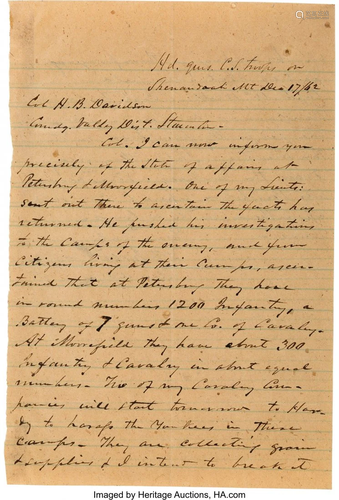 Hd. qurs. C.S. troops on
Shenandoah Mt Dec 17/62
Col H. B. Davidson
Comdg. Valley Dist. Staunton.
Col. I can now inform you
precisely of the State of affairs at
Petersburg & Moorefield. One of my Lieuts:
sent out there to ascertain the facts has
returned. He pushed his investigations
to the Camps of the enemy, and from
Citizens living at their Camps, ascer-
tained that at Petersburg they have
in round numbers 1200 Infantry, a
Battery of 7 guns & one Co. of Cavalry.
At Moorefield they have about 300
Infantry & Cavalry in about equal
numbers. Two of my Cavalry Com-
panies will start tomorrow to Har-
dy to harass the Yankees in these
camps. They are collecting grain
& supplies & I intend to break it
Imaged by Heritage Auctions, HA.com